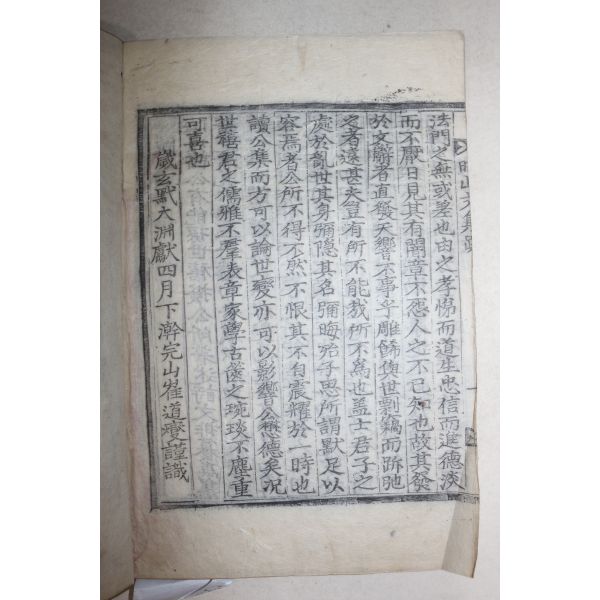 法門之無或差也由之孝悌而道生忠信而進德淡
而不厭日見其有闇章不慍人之不已知也故其發
於文辭者直發天響不事乎雕餙與世剽竊而跅弛
之者遠甚夫豈有所不能哉所不為也盖士君子之
處於亂世其身彌隱其名彌晦殆子思所謂默足以
容焉者公所不得不然不恨其不自震耀於一時也
讀公集而方可以論世變亦可以影響公懿德矣况
世禧君之儒雅不羣表章家學古篋之琬琰不塵重
可喜也
歲玄黓大淵獻四月下澣完山崔道燮謹識
山文集跋